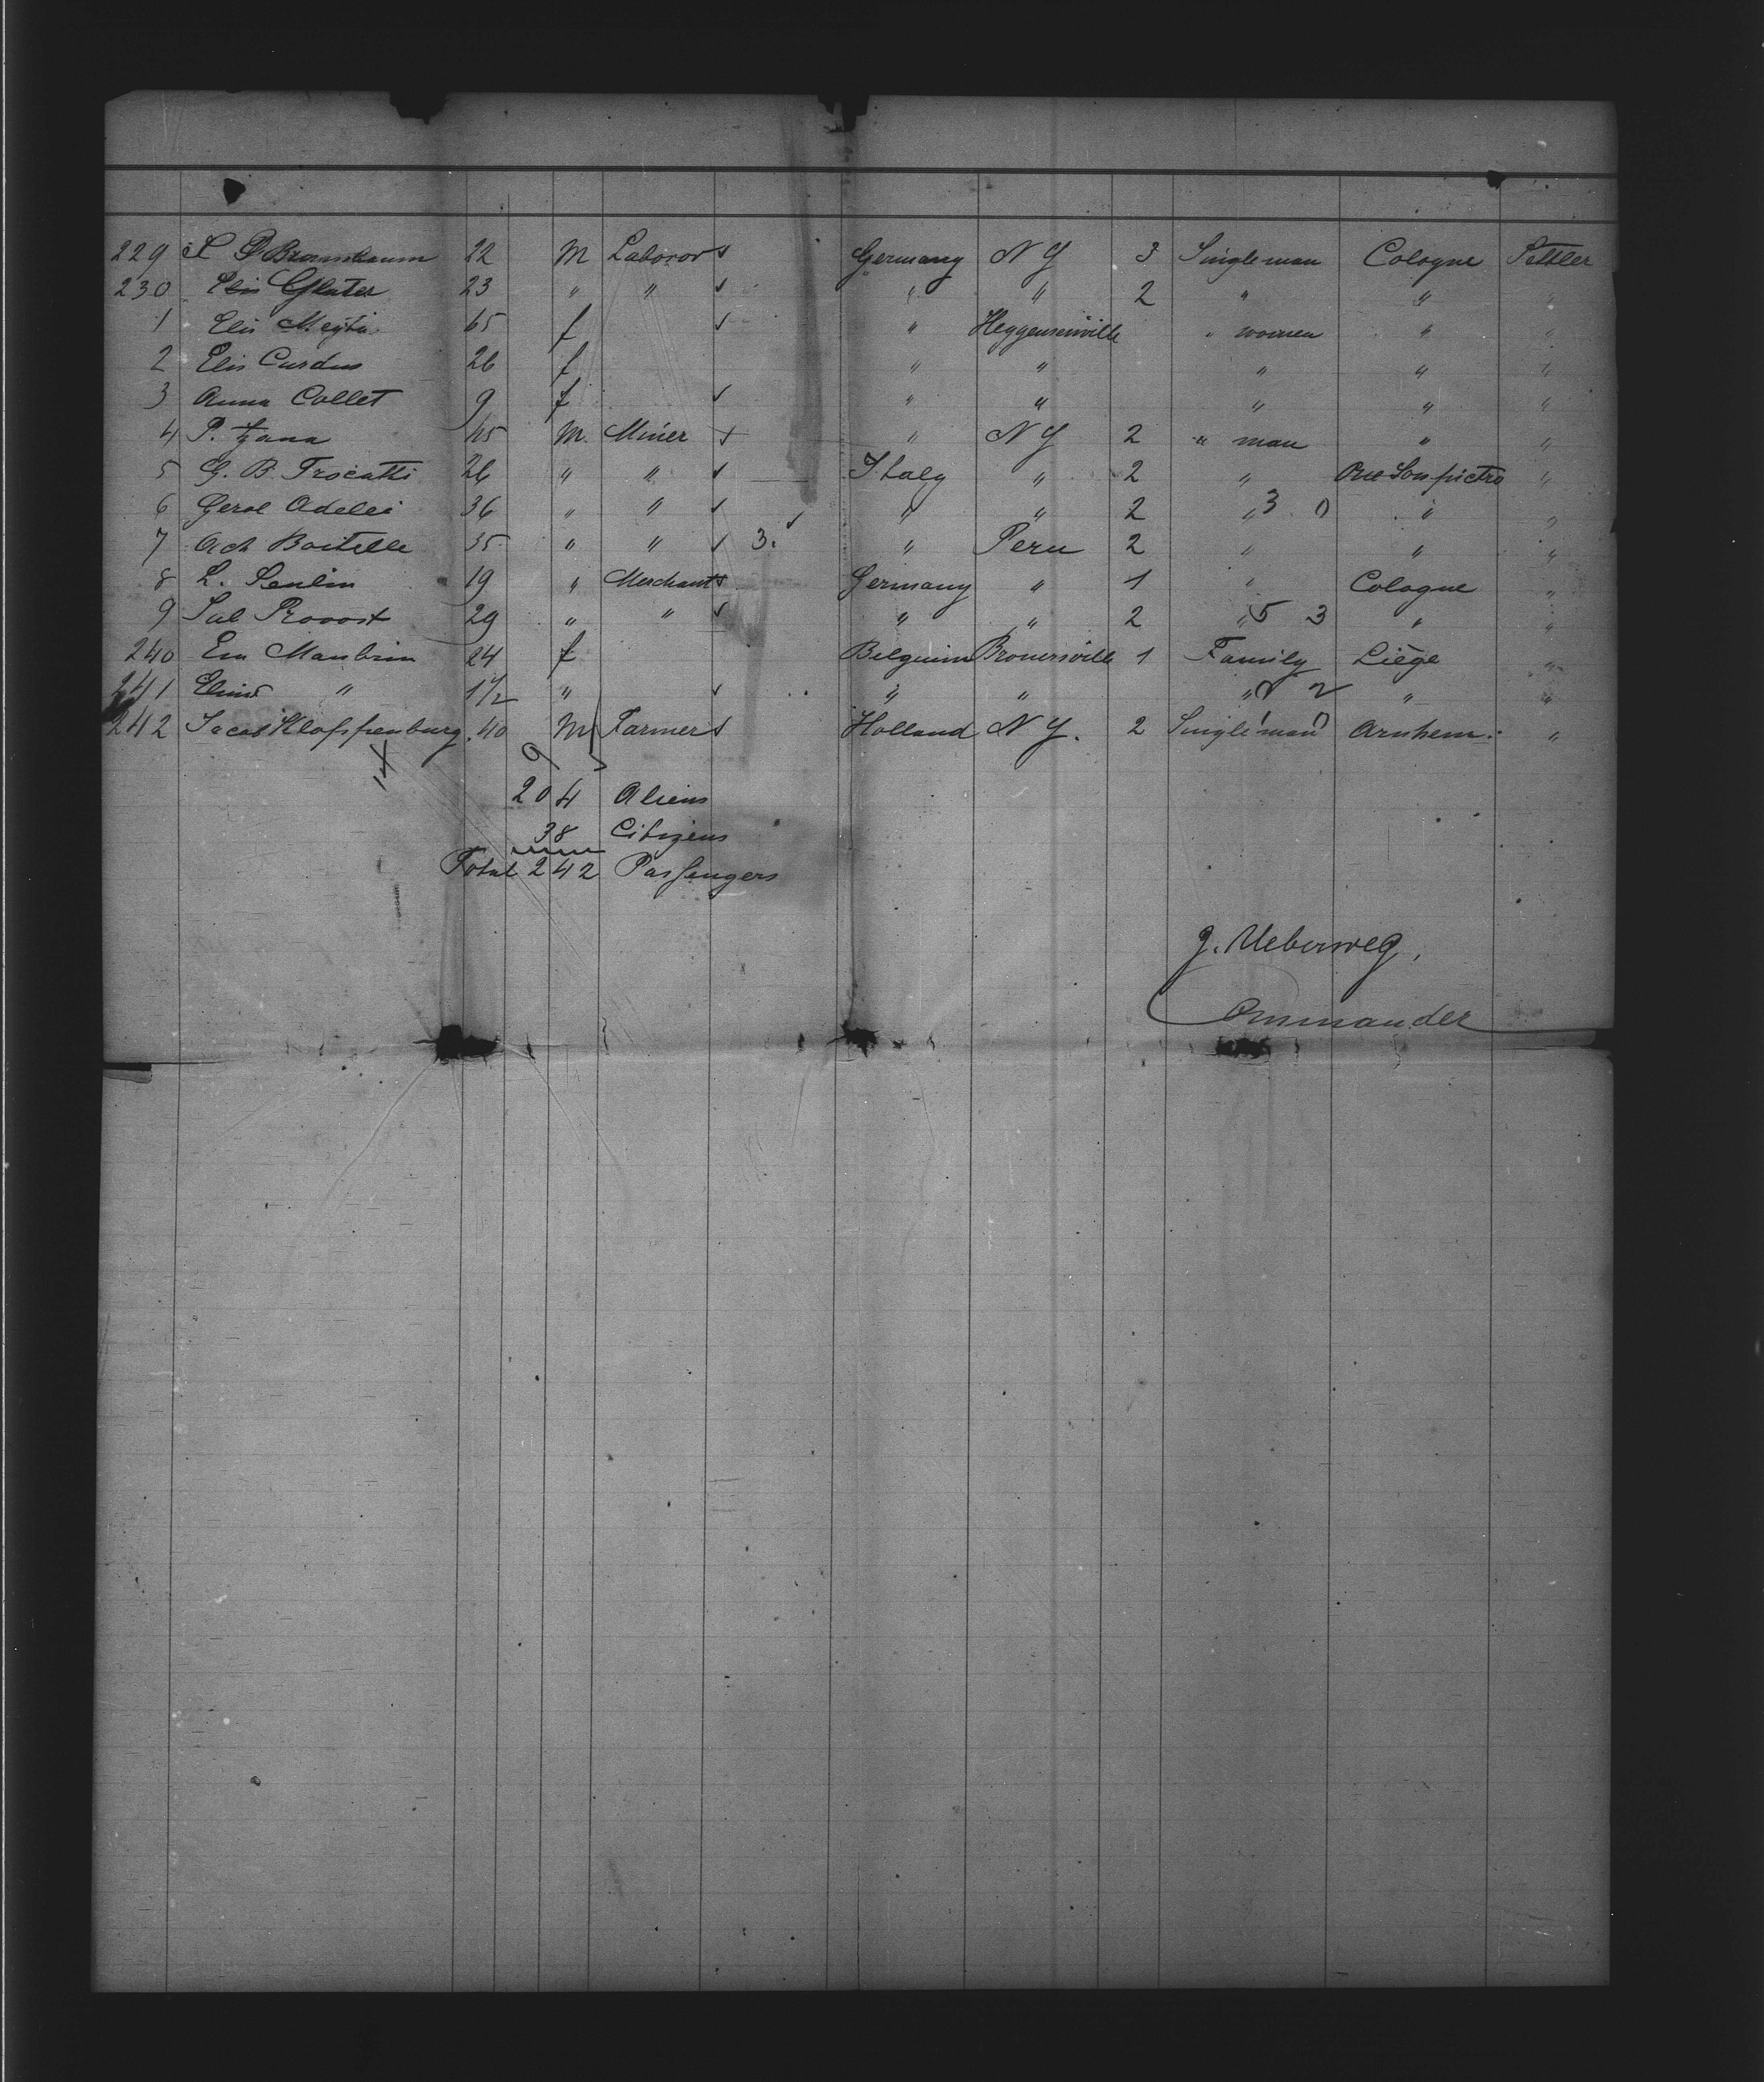 229 S D Braunbaum 22 M Laboror ✓ Germany N Y 3 Single man Cologne Settler
230 Elis Glater 23 " " ✓ " " 2 " " "
1 Elis 65 f ✓ " Heggensenville " women " "
2 Elis Curdus 26 f " " " " "
3 Anna Collet 9 f ✓ " " " " "
4 P. Hana 45 M. Miner ✓ " N Y 2 " man " "
5 G. B. Trocatti 26 " " ✓ Italy " 2 " "
6 Gerol Adelei 36 " " ✓ ✓ " " 2 " 3 0 " "
7 Ach Boitelle 35 " " ✓ 3. " Peru 2 " " "
8 L. Senlin 19 " Merchant ✓ Germany " 1 " Cologne "
9 Sul Provost 29 " " ✓ " " 2 " 5 3 " "
240 Em Maubrin 24 f Belguim Brouersville 1 Family Liège "
241 " 1 1/2 " ✓ " " " 2 " "
242 Jacob Kloppenburg 40 M Farmer ✓ Holland N Y. 2 Single man Arnhem. "
14 9 5
204 Aliens
38 Citizens
Total 242 Passengers
G. Ueberweg,
Commander